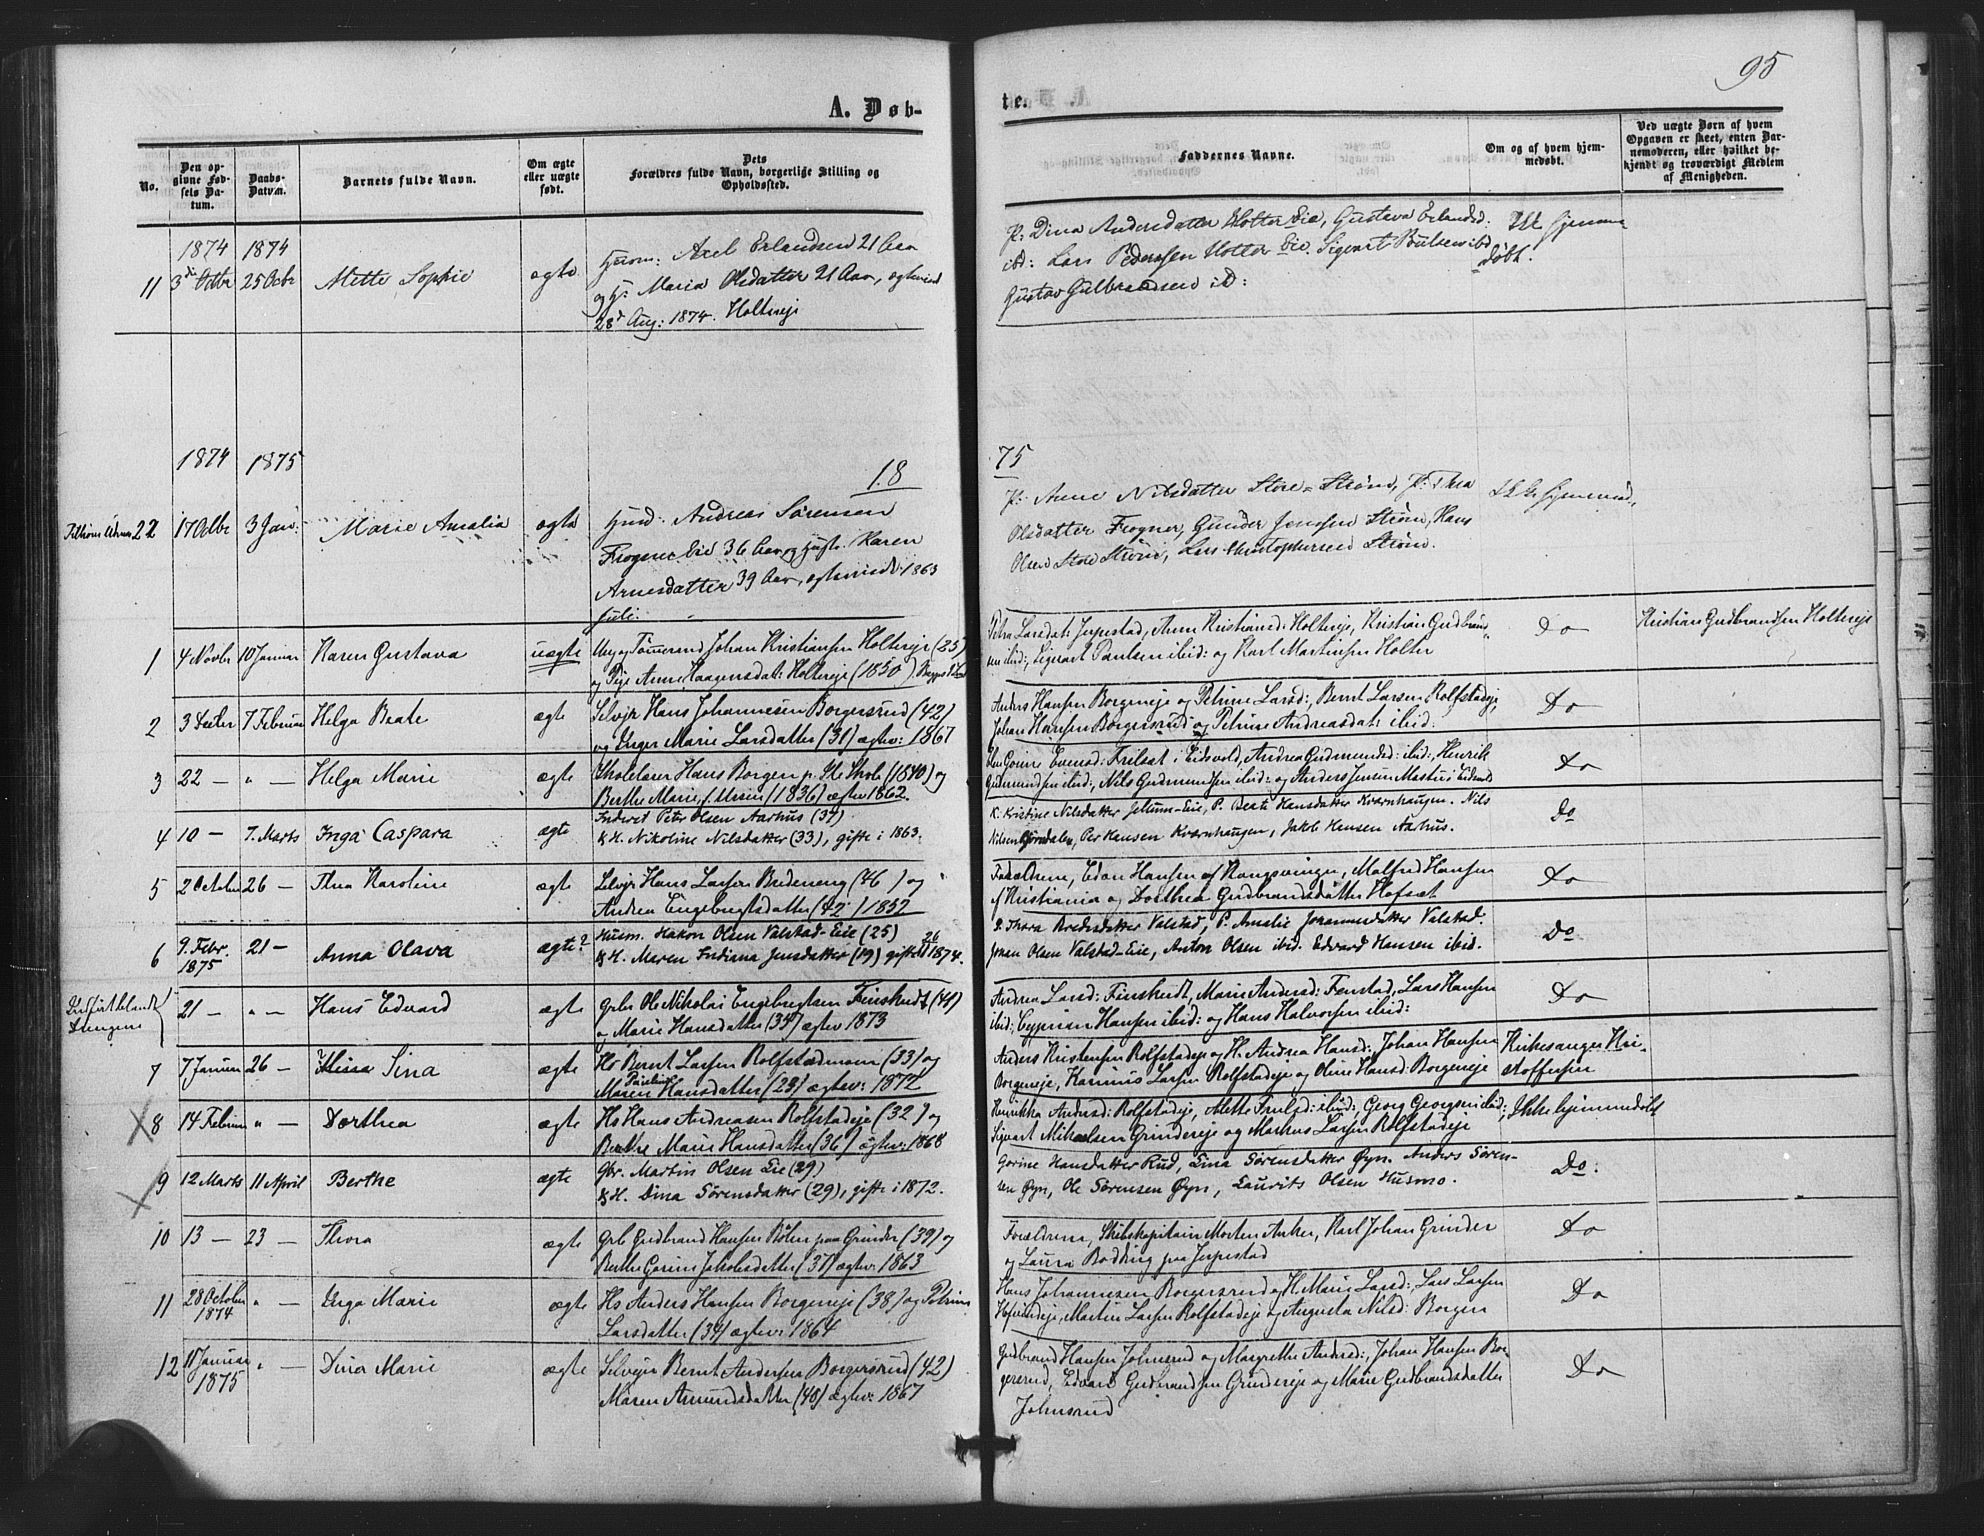 95
A. Døb-
te.
No.
Den op-
givne Fød-
sels Da-
tum.
Daabs-
Datum.
Barnets fulde Navn.
Om ægte
eller uægte
født.
Dets
Forældres fulde Navn, borgerlige Stilling og
Opholdssted.
Faddernes Navne.
Om og af hvem hjem-
medøbt.
Ved uægte Børn af hvem
Opgaven er skeet, enten Bar-
nemoderen, eller hvilket be-
kjendt og troværdigt Medlem
af Menigheden.
1874 1874
11 3die Octbr 25 Octbr Mette Sophie ægte
Husm: Axel Erlandsen 21 Aar
og H: Maria Olsdatter 21 Aar, ægteviet
28d Aug: 1874. Holtereje
P: Dina Andersdatter Holter Eie, Gustava Erlandsd:
ibd: Lars Pedersen Holter Eie. Sigvart Poulsen ibd
Gustav Gulbrandsen ibd:
Ikke hjemme
døbt.
1874 1875
18
75
22 17 Octbr 3 Jan: Marie Amalia ægte
Husd: Andreas Sørensen
Frogner Eie 36 Aar og Hust: Karen
Arnesdatter 39 Aar, ægteviede 1863
Juli.
P: Anne Nilsdatter Store-Strønd, P: Thea
Olsdatter Frogner, Gunder Jensen Strøm, Hans
Olsen Store Strønd, Lars Christophersen Strønd.
1 4 Novbr 10 Januar Karen Gustava uægte
Ung Tømmermd Johan Kristiansen Holtereje (25)
og Pige Anne Haagensdat: Holtereje (1850)
Petra Larsdat: Jerpestad, Anne Kristiansd: Holtereje, Kristian Gudbrand-
sen ibid:, Sigvart Paulsen ibid: og Karl Martinsen Holter
Do
Kristian Gudbrandsen Holtereje
2 3 Decbr 7 Februar Helga Beate ægte
Selvejr Hans Johannesen Borgersrud (42)
og Inger Marie Larsdatter (31) ægtev: 1867
Anders Hansen Borgeneje og Petrine Larsd:, Bernt Larsen Rolfstadeje,
Johan Hansen Borgersrud og Petrine Andreasdat: ibid:
Do
3 22 — " — Helga Marie ægte
Skolelærer Hans Borgen p. Ste Skole (1840) og
Berthe Marie f. Ursin (1836) ægtev 1862.
Gudmundsen ibid:, Nils Gudmundsen ibid: og Anders Jensen Mastu i Eidsvold
Do
4 10 — 7. Marts Inga Caspara ægte
Inderst Petr Olsen Aarhus (37)
& H. Nikoline Nilsdatter (33), gifte i 1863.
K. Kristine Nilsdatter Jellum-Eie, P. Beate Hansdatter Kværnhaugen. Nils
Nilsen Bjørndalen, Per Hansen Kværnhaugen, Jakob Hansen Aarhus.
Do
5 2 October 26 — Thea Karoline ægte
Selvejr Hans Larsen Bredeneng (46) og
Andrea Engebregtsdatter (42) 1852
Forældrene, Edon Hansen af Kongsvinger, Malfred Hansen
f Kristiania og Dorthea Gudbrandsdatter Hofsæt
Do
6 9. Febr. 1875 21 — Anna Olava ægte?
Husm. Hakon Olsen Valstad-Eie (25)
& H. Maren Indiana Jensdatter (19) gifte 26 1874.
P. Thora Bredesdatter Valstad, P. Amalie Johannesdatter Valstad.
Johan Olsen Valstad-Eie, Anton Olsen ibid. Edvard Hansen ibid.
Do
21 — " — Hans Edvard ægte
Grbr Ole Nikolai Engebregtsen Finskudt (41)
og Marie Hansdatter (35) ægtev 1873
Andrea Larsd: Finskudt, Marie Andersd: Fenstad, Lars Hansen
ibid:, Cyprian Hansen ibid: og Hans Halvorsen ibid:
Do
7 7 Januar 26 — Sina ægte
Hs Bernt Larsen Rolfstadmoen (33) og
Maren Pauline Hansdatter (23) ægtev: 1872
Anders Kristensen Rolfstadeje og H. Andrea Hansd:, Johan Hansen
Borgeneje, Karinus Larsen Rolfstadeje og Oline Hansd: Borgeneje
Kirkesanger Kri-
stoffersen
8 14 Februar " — Dorthea ægte
Hs Hans Andreasen Rolfstadeje (32) og
Berthe Marie Hansdatter (36) ægtev: 1868
Henrikka Andersd: Rolfstadeje, Alette Truelsd: ibid:, Georg Georgsen ibid:,
Sigvart Mikaelsen Grindereje og Markus Larsen Rolfstadeje
Ikke hjemmedøbt
9 12 Marts 11 April Berthe ægte
Gbr. Martin Olsen Eie (29)
& H. Dina Sørensdatter (29), gifte i 1872.
Gorine Hansdatter Rud, Lina Sørensdatter Øyn. Anders Søren-
sen Øyn, Ole Sørensen Øyn, Laurits Olsen Husmo.
Do.
10 13 — 23 — Thora ægte
Grb Gudbrand Hansen Bøhn paa Grinder (39) og
Berthe Gorine Jakobsdatter (37) ægtev: 1863
Forældrene, Skibskapitain Morten Anker, Karl Johan Grinder
og Laura Bodding paa Jerpestad
Do
11 28 October 1874 " — Inga Marie ægte
Hs Anders Hansen Borgeneje (38) og Petrine
Larsdatter (34) ægtev: 1864
Hans Johannesen Borgersrud og H. Marie Larsd:, Lars Larsen
Hofsindeje, Martin Larsen Rolfstadeje og Augusta Nilsd: Borgen
Do
12 11 Januar 1875 " — Dina Marie ægte
Selvejr Bernt Andersen Borgersrud (42)
Maren Amundsdatter (40) ægtev: 1867
Gudbrand Hansen Johnsrud og Margrethe Andersd:, Johan Hansen Bor-
gersrud, Edvard Gudbrandsen Grindereje og Marie Gudbrandsdatter
Johnsrud
Do